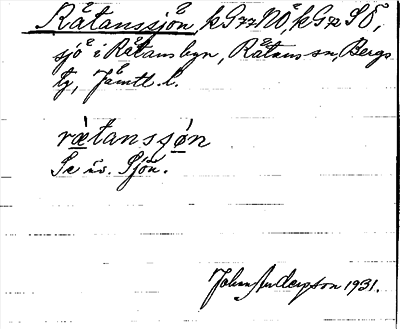 Råtanssjön, kG72NÖ, kG72SÖ,
sjö i Råtansbyn, Råtans sn, Bergs
tg, Jämtl. l.
rætanssjøn
Se äv. Sjön.
John Anderson 1931.